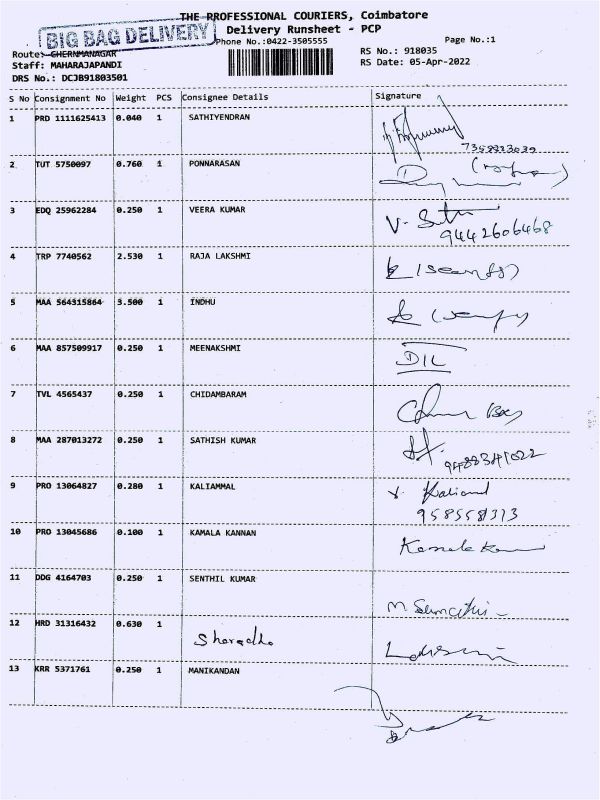 THE PROFESSIONAL COURIERS, Coimbatore
BIG BAG DELIVERY
Delivery Runsheet - PCP
Phone No.:0422-3505555
Page No.:1
Route: CHERNMANAGAR
RS No.: 918035
Staff: MAHARAJAPANDI
RS Date: 05-Apr-2022
DRS No.: DCJB91803501
S No Consignment No Weight PCS Consignee Details Signature
1 PRD 1111625413 0.040 1 SATHIYENDRAN
2 TUT 5750097 0.760 1 PONNARASAN
3 EDQ 25962284 0.250 1 VEERA KUMAR
9442606468
4 TRP 7740562 2.530 1 RAJA LAKSHMI
5 MAA 564315864 3.500 1 INDHU
6 MAA 857509917 0.250 1 MEENAKSHMI
7 TVL 4565437 0.250 1 CHIDAMBARAM
8 MAA 287013272 0.250 1 SATHISH KUMAR
9 PRO 13064827 0.280 1 KALIAMMAL
10 PRO 13045686 0.100 1 KAMALA KANNAN
11 DDG 4164703 0.250 1 SENTHIL KUMAR
12 HRD 31316432 0.630 1 Sharadha
13 KRR 5371761 0.250 1 MANIKANDAN